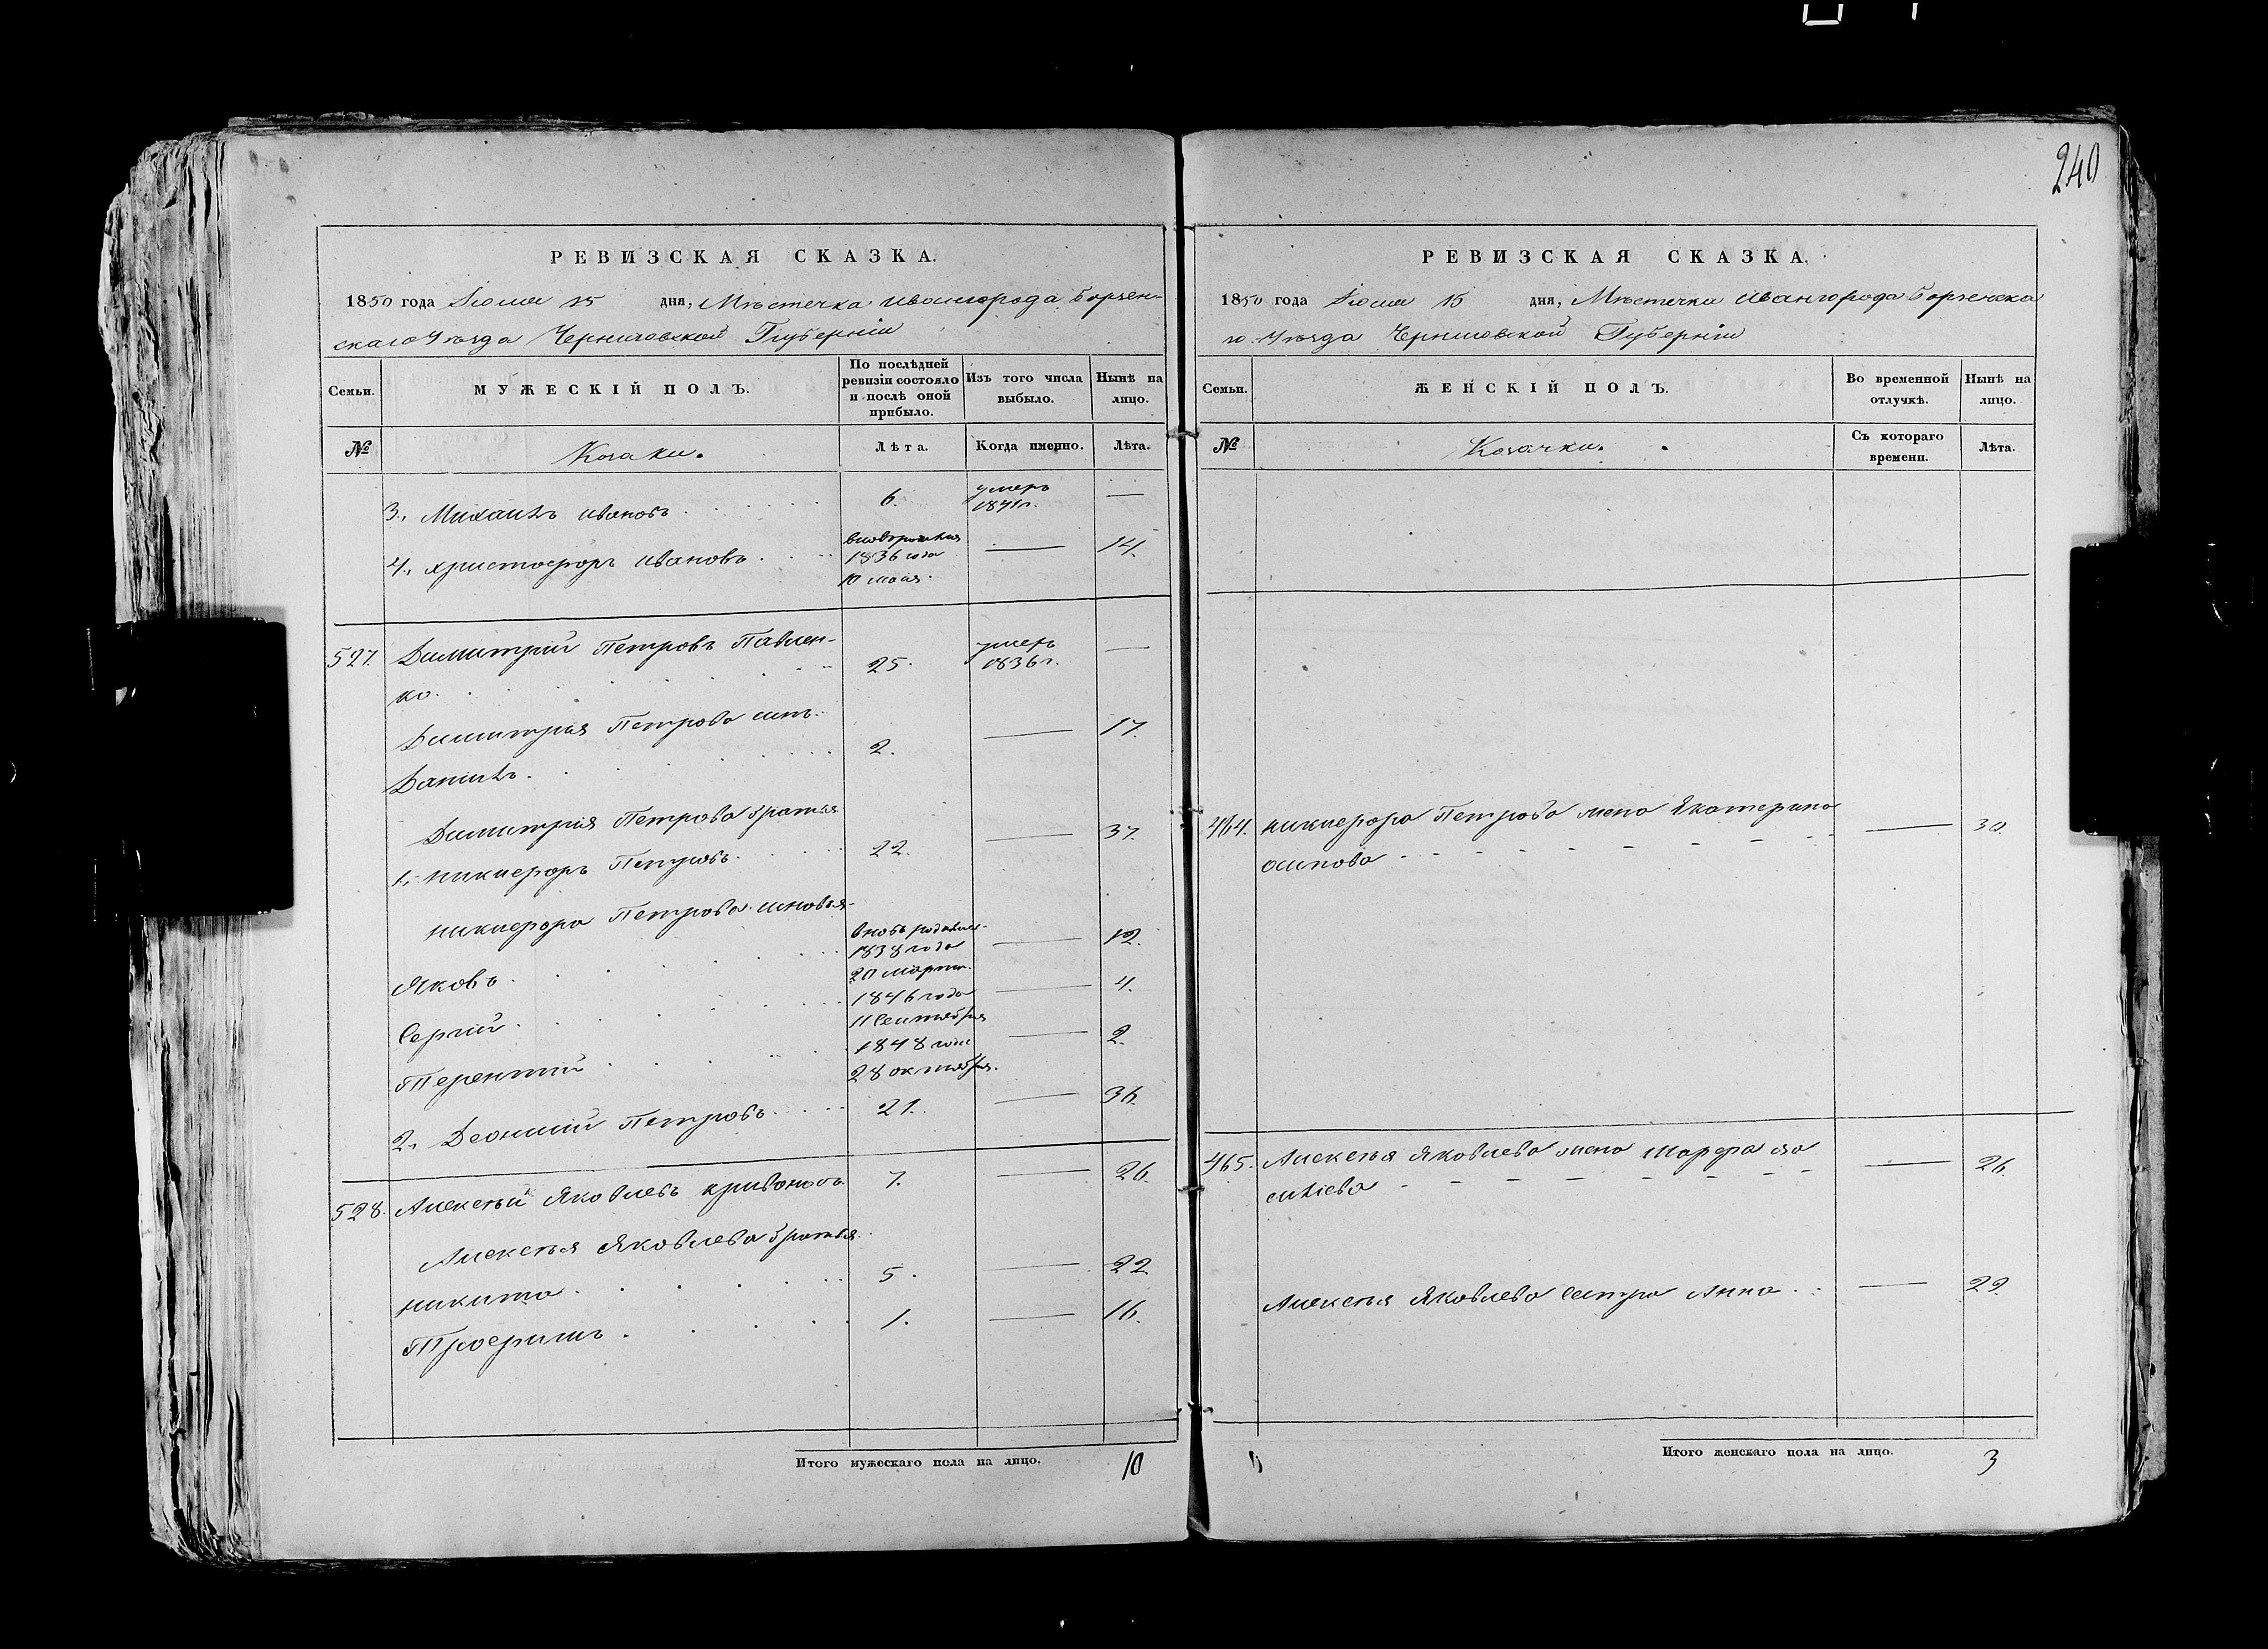 240
РЕВИЗСКАЯ СКАЗКА.
1850 года Іюля 15 дня, Мѣстечка Ивангорода Борзен-
скаго Уѣзда Черниговской Губерніи
Семьи.
МУЖЕСКІЙ ПОЛЪ.
По послѣдней ревизіи состояло и послѣ оной прибыло.
Изъ того числа выбыло.
Нынѣ на лицо.
№
Козаки.
Лѣта.
Когда именно.
Лѣта.
3., Михаилъ Ивановъ 6. умеръ 1841г. —
4., Христофоръ Ивановъ 1836 года 10 мая. — 14.
527. Димитрій Петровъ Павлен-
ко. 25. умеръ 1836г. —
Димитрія Петрова сынъ
Даніилъ. 2. — 17.
Димитрія Петрова братья
1., Никифоръ Петровъ. 22. — 37.
Никифора Петрова сыновья
Яковъ. вновь родился 1838 года 20 марта. — 12.
Сергій. 1846 года 11 Сентября — 4.
Терентій 1848 года 28 октября. — 2.
2., Деонисій Петровъ. 21. — 36.
528. Алексѣй Яковлевъ Кривоносъ 7. — 26.
Алексѣя Яковлева братья.
Никита. 5. — 22.
Трофимъ. 1. — 16.
Итого мужескаго пола на лицо. 10
РЕВИЗСКАЯ СКАЗКА.
1850 года Іюля 15 дня, Мѣстечка Ивангорода Борзенска
го Уѣзда Черниговской Губерніи
Семьи.
ЖЕНСКІЙ ПОЛЪ.
Во временной отлучкѣ.
Нынѣ на лицо.
№
Козачки.
Съ котораго времени.
Лѣта.
464. Никифора Петрова жена Екатерина
Осипова — 30.
465. Алексѣя Яковлева жена Марфа
— 26.
Алексѣя Яковлева сестра Анна. — 22.
Итого женскаго пола на лицо. 3